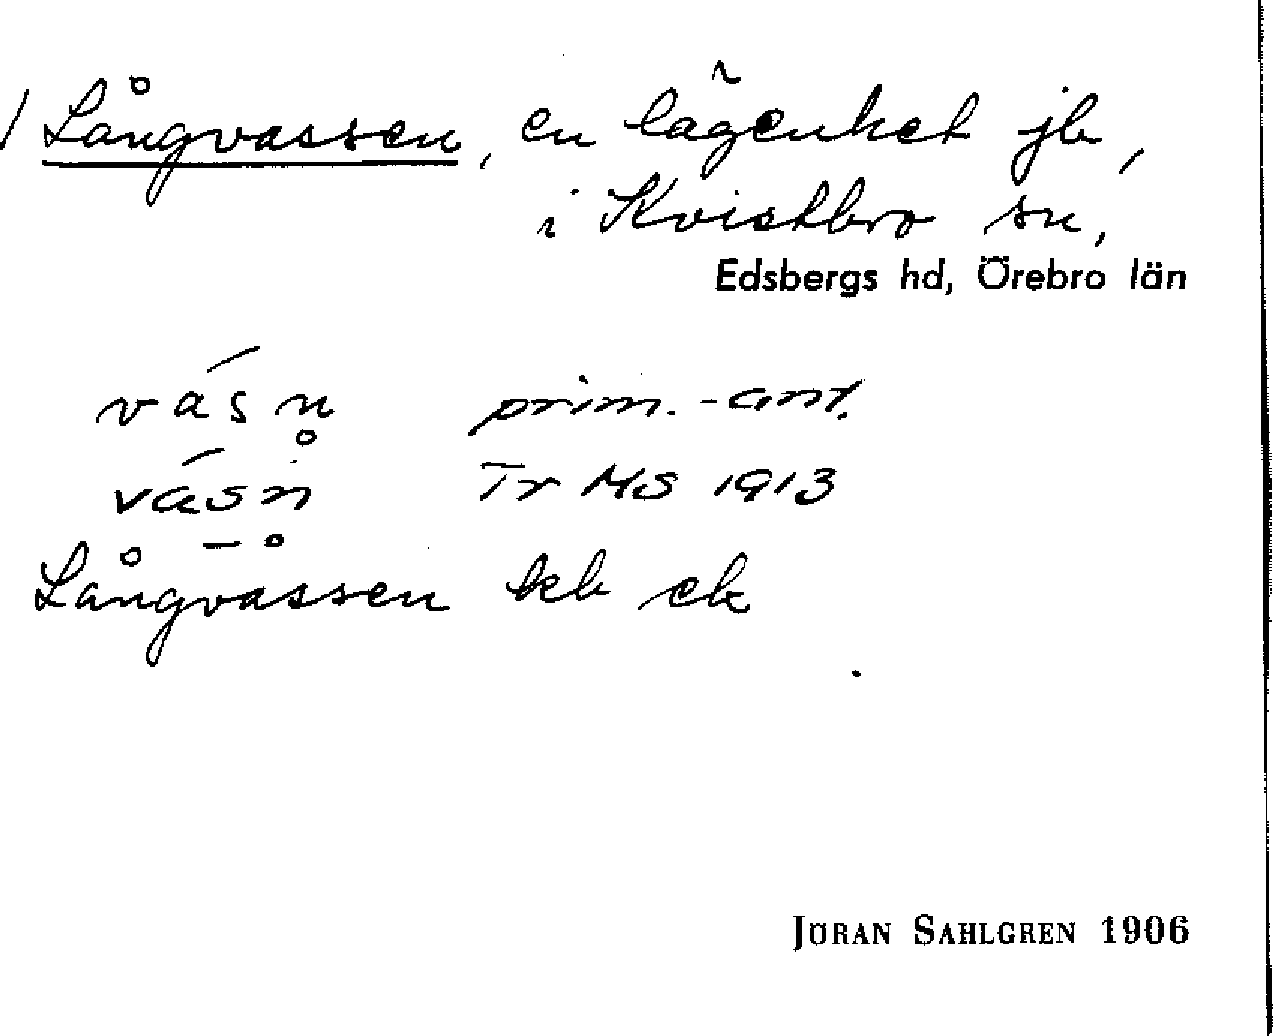 / Långvassen, en lägenhet jb,
i Kvistbro sn,
Edsbergs hd, Örebro län
vásn̥ prim.-ant.
vásn̊ Tr MS 1913
Långvåssen kb ek
JÖRAN SAHLGREN 1906